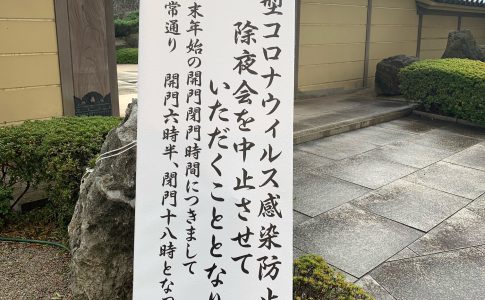 型コロナウイルス感染防止
除夜会を中止させて
いただくこととなり
末年始の開門閉門時間につきまして
常通り　開門六時半、閉門十八時となっ